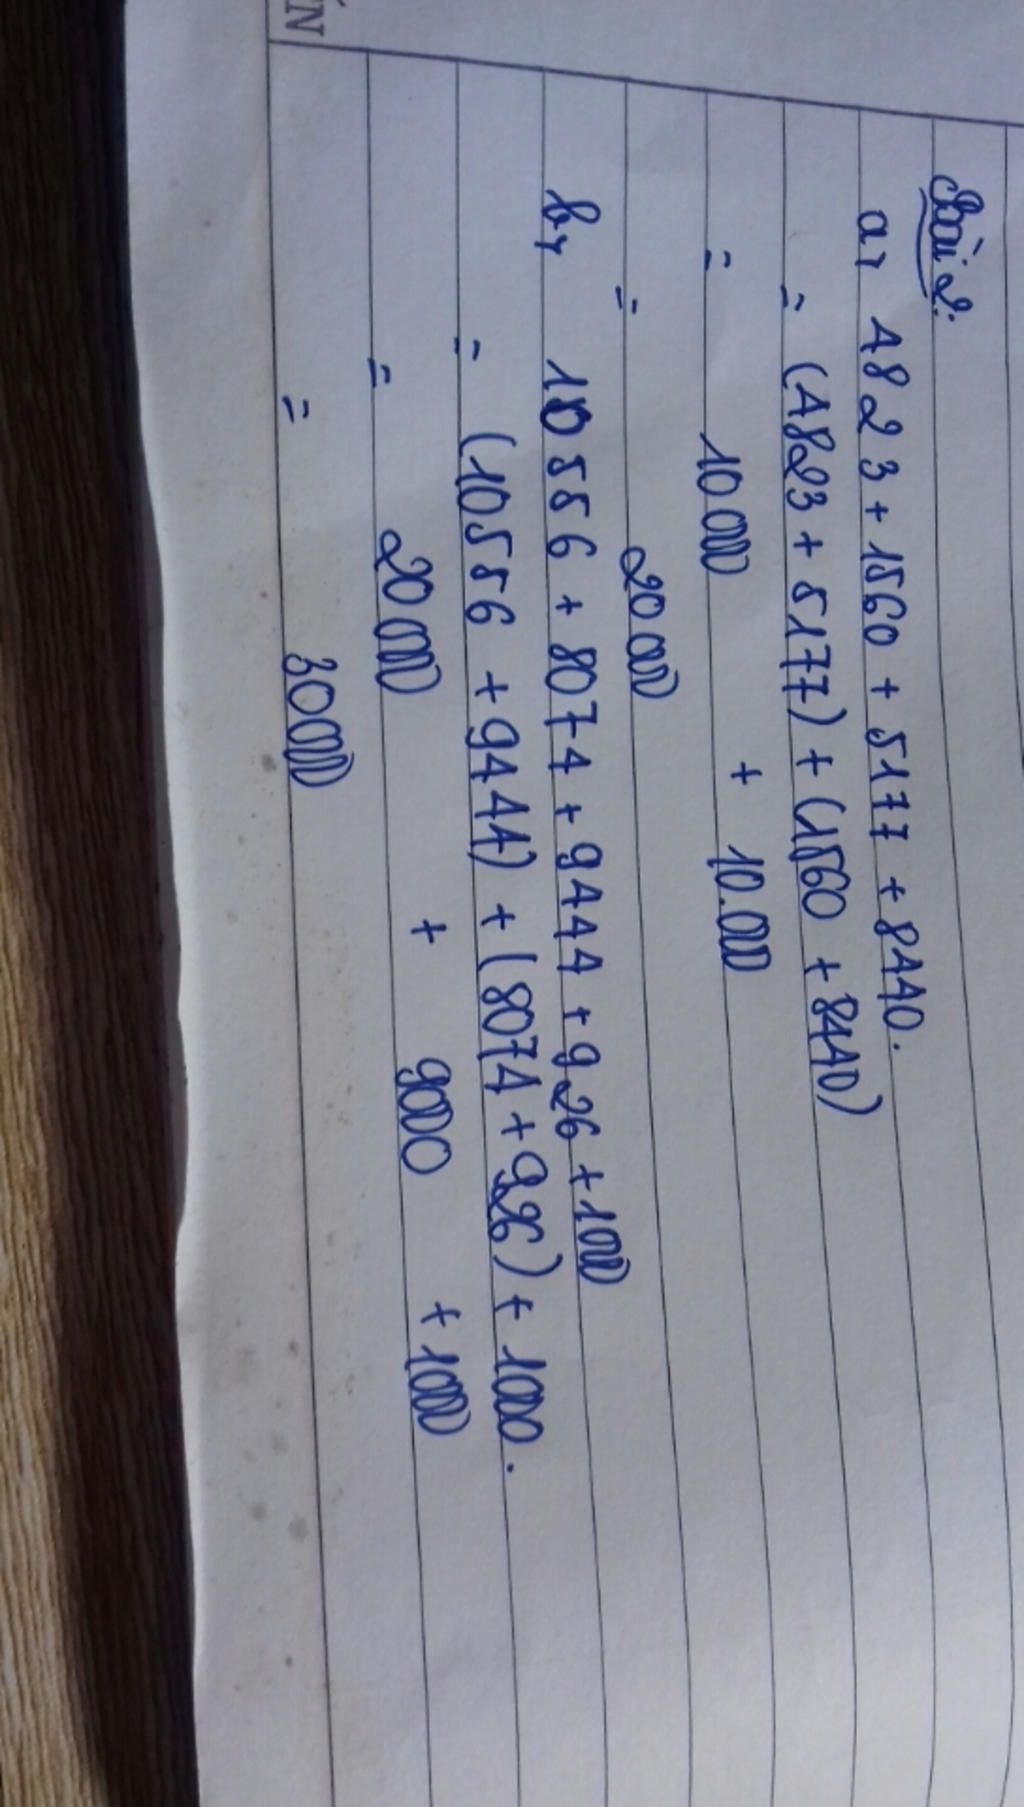 Bài 2:
a, 4823 + 1560 + 5177 + 8440.
= (4823 + 5177) + (1560 + 8440)
= 10000 + 10.000
= 20000
b, 10556 + 8074 + 9444 + 926 + 1000
= (10556 + 9444) + (8074 + 926) + 1000.
= 20000 + 9000 + 1000
= 30000